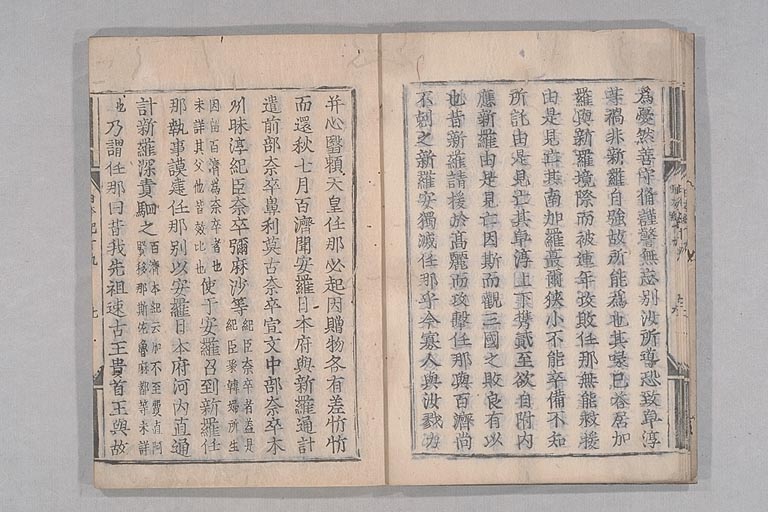 爲憂然善守備謹警無忘別汝所噵恐致卓淳
等禍非新羅自強故所能爲也其㖨己呑居加
羅與新羅境際而被連年攻敗任那無能救援
由是見亡其南加羅蕞爾狹小不能卒備不知
所託由是見亡其卓淳上下攜貳主欲自附內
應新羅由是見亡因斯而觀三國之敗良有以
也昔新羅請援於高麗而攻擊任那與百濟尚
不剋之新羅安獨滅任那乎今寡人與汝戮力
幷心翳賴天皇任那必起因贈物各有差忻忻
而還秋七月百濟聞安羅日本府與新羅通計
遣前部奈卒鼻利莫古奈卒宣文中部奈卒木
刕眯淳紀臣奈卒彌麻沙等紀臣奈卒者蓋是紀臣娶韓婦所生
因留百濟爲奈卒者也未詳其父他皆效此也使于安羅召到新羅任
那執事謨建任那別以安羅日本府河內直通
計新羅深責罵之百濟本紀云加不至費直阿賢移那斯佐魯麻都等未詳
也乃謂任那曰昔我先祖速古王貴首王與故